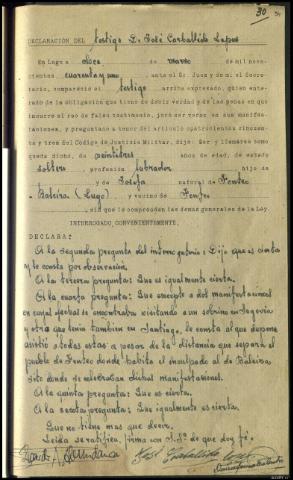 30
DECLARACIÓN DEL testigo D. José Carballido Lopez
En Lugo a doce de marzo de mil nove-
cientos cuarenta y uno, ante el Sr. Juez y de mí el secre-
tario, compareció el testigo arriba expresado, quien ente-
rado de la obligación que tiene de decir verdad y de las penas en que
incurre el reo de falso testimonio, juró ser veraz en sus manifes-
taciones, y preguntado a tenor del artículo cuatrocientos cincuen-
ta y tres del Código de Justicia Militar, dijo: Ser y llamarse como
queda dicho, de veintitres años de edad, de estado
soltero profesión labrador hijo de
y de Josefa natural de Fonteo
Baleira (Lugo) y vecino de Fonteo
, sin que le comprendan las demás generales de la Ley
INTERROGADO CONVENIENTEMENTE.
DECLARA:
A la segunda pregunta del interrogatorio: Dijo que es cierta
y le consta por observación.
A la tercera pregunta: Que es igualmente cierta.
A la cuarta pregunta: Que excepto a dos manifestaciones
en cuyas fechas se encontraba visitando a un sobrino en Segovia
y otro que tenia tambien en Santiago, le consta al que depone
asistió a todas estas a pesar de la distancia que separa el
pueblo de Fonteo donde habita el inculpado al de Baleira
sitio donde se celebraban dichas manifestaciones.
A la quinta pregunta: Que es cierta.
A la sexta pregunta: Que es igualmente cierta.
Que no tiene mas que decir.
Leida se ratifica, firma con S. Sª de que doy fé.
José Carballido Lopez